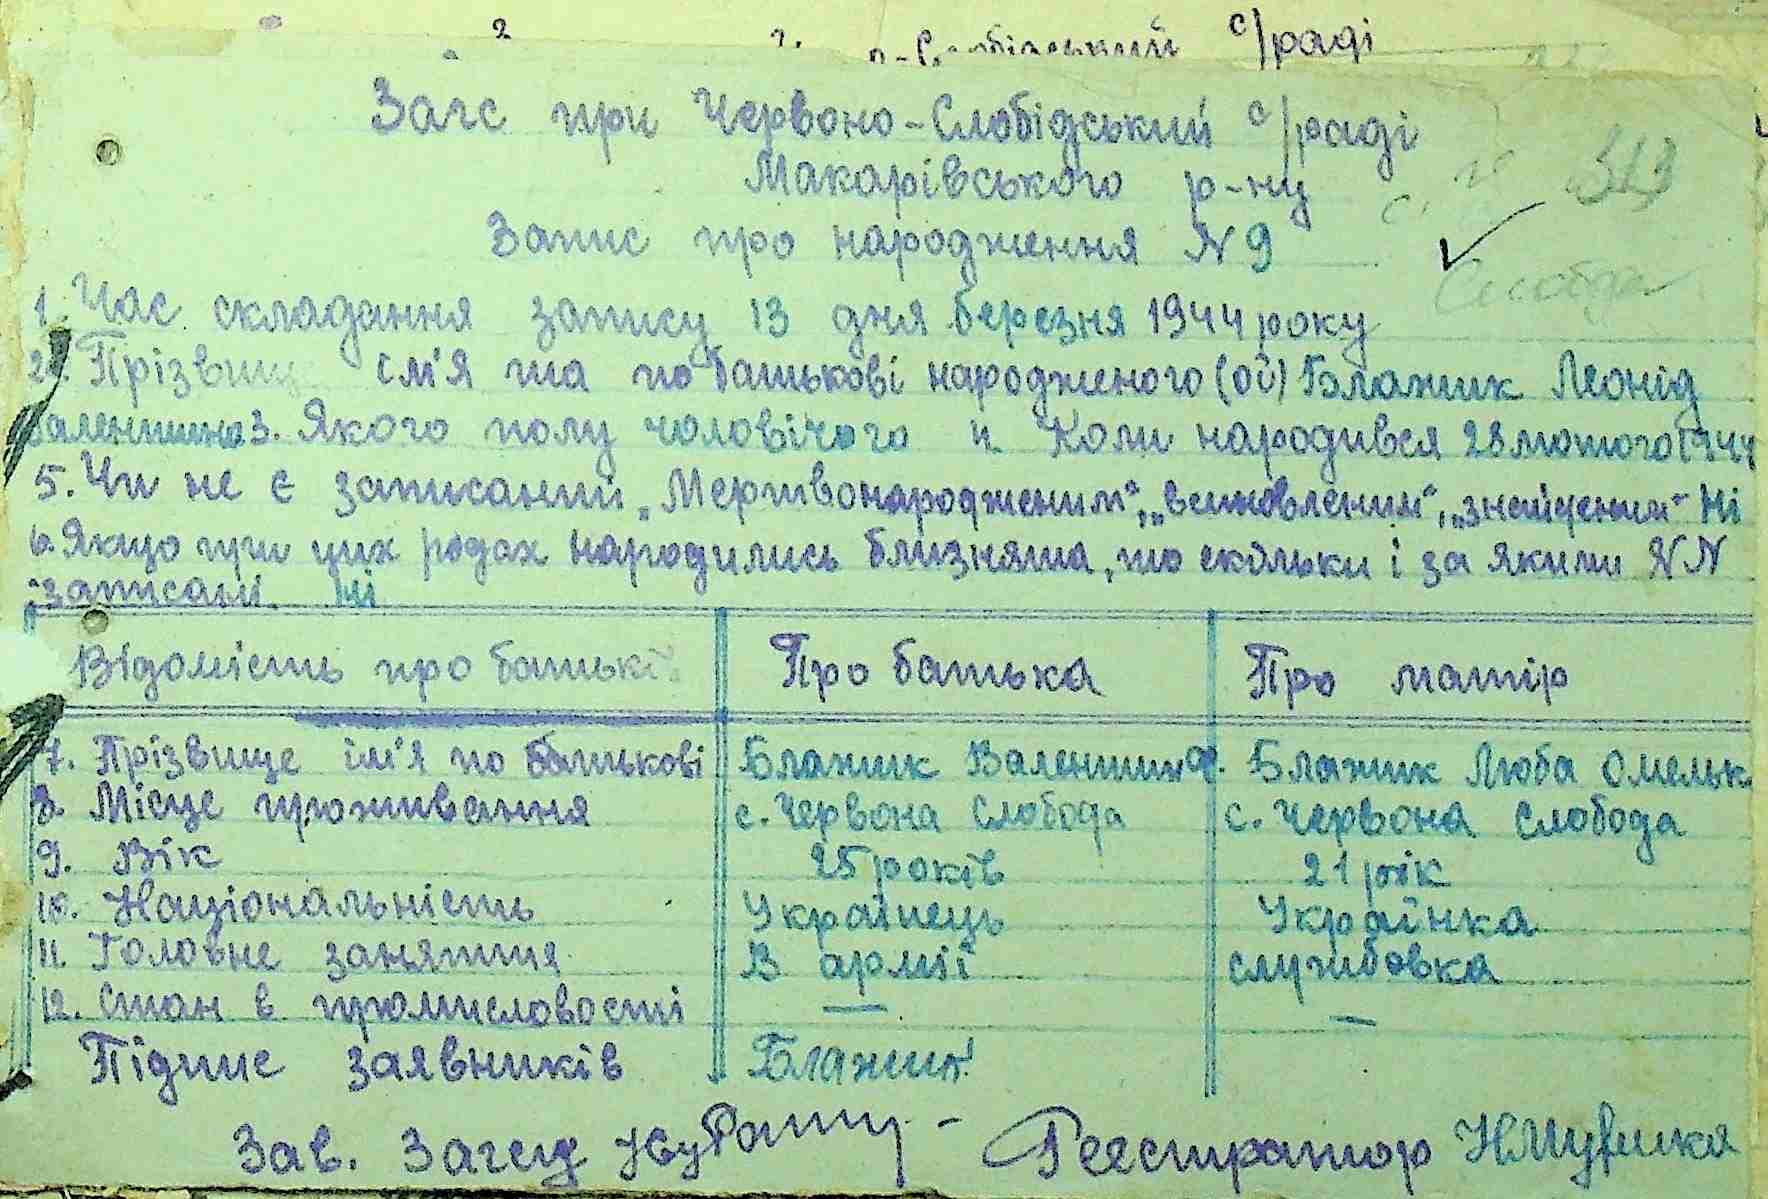 с/раді
Загс при Червоно-Слобідський с/раді
Макарівського р-ну
313
Запис про народження N 9
Слобода
1. Час складання запису 13 дня березня 1944 року
2. Прізвище ім'я та по батькові народженого (ої) Блажик Леонід
Валентино 3. Якого полу чоловічого 4. Коли народився 28 лютого 1944
5. Чи не є записаний „Мертвонародженим", „всиновленим", „знайденим" Ні
6. Якщо при цих родах народились близнята, то скільки і за якими NN
записані Ні
Відомість про батьків Про батька Про матір
7. Прізвище ім'я по батькові Блажик Валентин Блажик Люба Омельк
8. Місце проживання с. Червона Слобода с. Червона Слобода
9. Вік 25 років 21 рік
10. Національність Українець Українка
11. Головне заняття В армії службовка
12. Стан в промисловості — —
Підпис заявників Блажик
Зав. Загсу Реєстратор